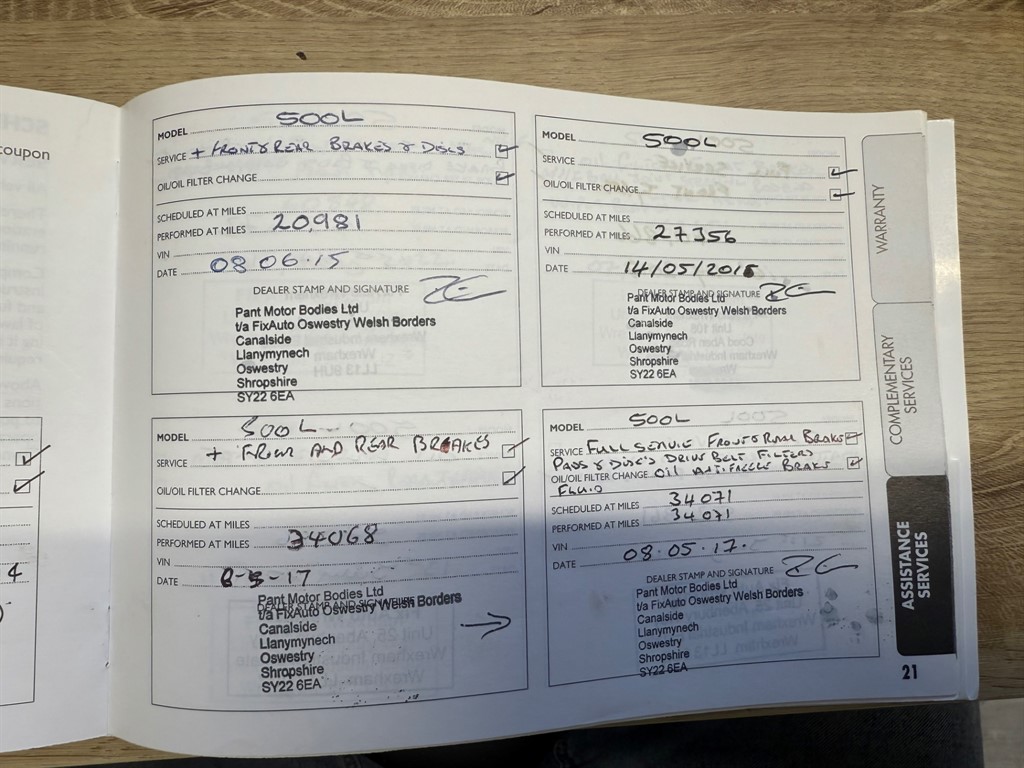 oupon
4
MODEL 500L
SERVICE + FRONT & REAR BRAKES & DISCS
OIL/OIL FILTER CHANGE
SCHEDULED AT MILES
PERFORMED AT MILES 20,981
VIN
DATE 08 06.15
DEALER STAMP AND SIGNATURE
Pant Motor Bodies Ltd
t/a FixAuto Oswestry Welsh Borders
Canalside
Llanymynech
Oswestry
Shropshire
SY22 6EA
MODEL 500L
SERVICE
OIL/OIL FILTER CHANGE
SCHEDULED AT MILES
PERFORMED AT MILES 27356
VIN
DATE 14/05/2016
DEALER STAMP AND SIGNATURE
Pant Motor Bodies Ltd
t/a FixAuto Oswestry Welsh Borders
Canalside
Llanymynech
Oswestry
Shropshire
SY22 6EA
MODEL 500L
SERVICE + FRONT AND REAR BREAKES
OIL/OIL FILTER CHANGE
SCHEDULED AT MILES
PERFORMED AT MILES 34068
VIN
DATE 8-5-17
DEALER STAMP AND SIGNATURE
Pant Motor Bodies Ltd
t/a FixAuto Oswestry Welsh Borders
Canalside
Llanymynech
Oswestry
Shropshire
SY22 6EA
MODEL 500L
SERVICE FULL SERVICE FRONT & REAR BRAKE
PADS & DISC'S DRIVE BELT FILTERS
OIL/OIL FILTER CHANGE OIL ANTIFREEZE BRAKE
FLUID
SCHEDULED AT MILES 34071
PERFORMED AT MILES 34071
VIN
DATE 08.05.17.
DEALER STAMP AND SIGNATURE
Pant Motor Bodies Ltd
t/a FixAuto Oswestry Welsh Borders
Canalside
Llanymynech
Oswestry
Shropshire
SY22 6EA
WARRANTY
COMPLEMENTARY
SERVICES
ASSISTANCE
SERVICES
21